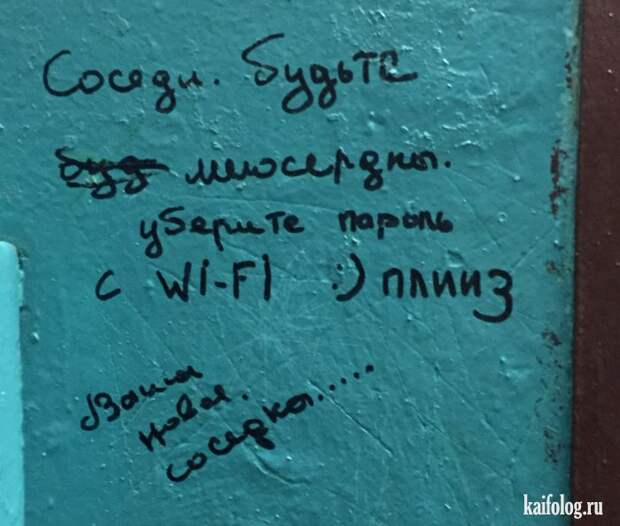 Соседи. Будьте
буд милосердны.
уберите пароль
с Wi-Fi :) плииз
Ваша
новая.
соседка.....
kaifolog.ru